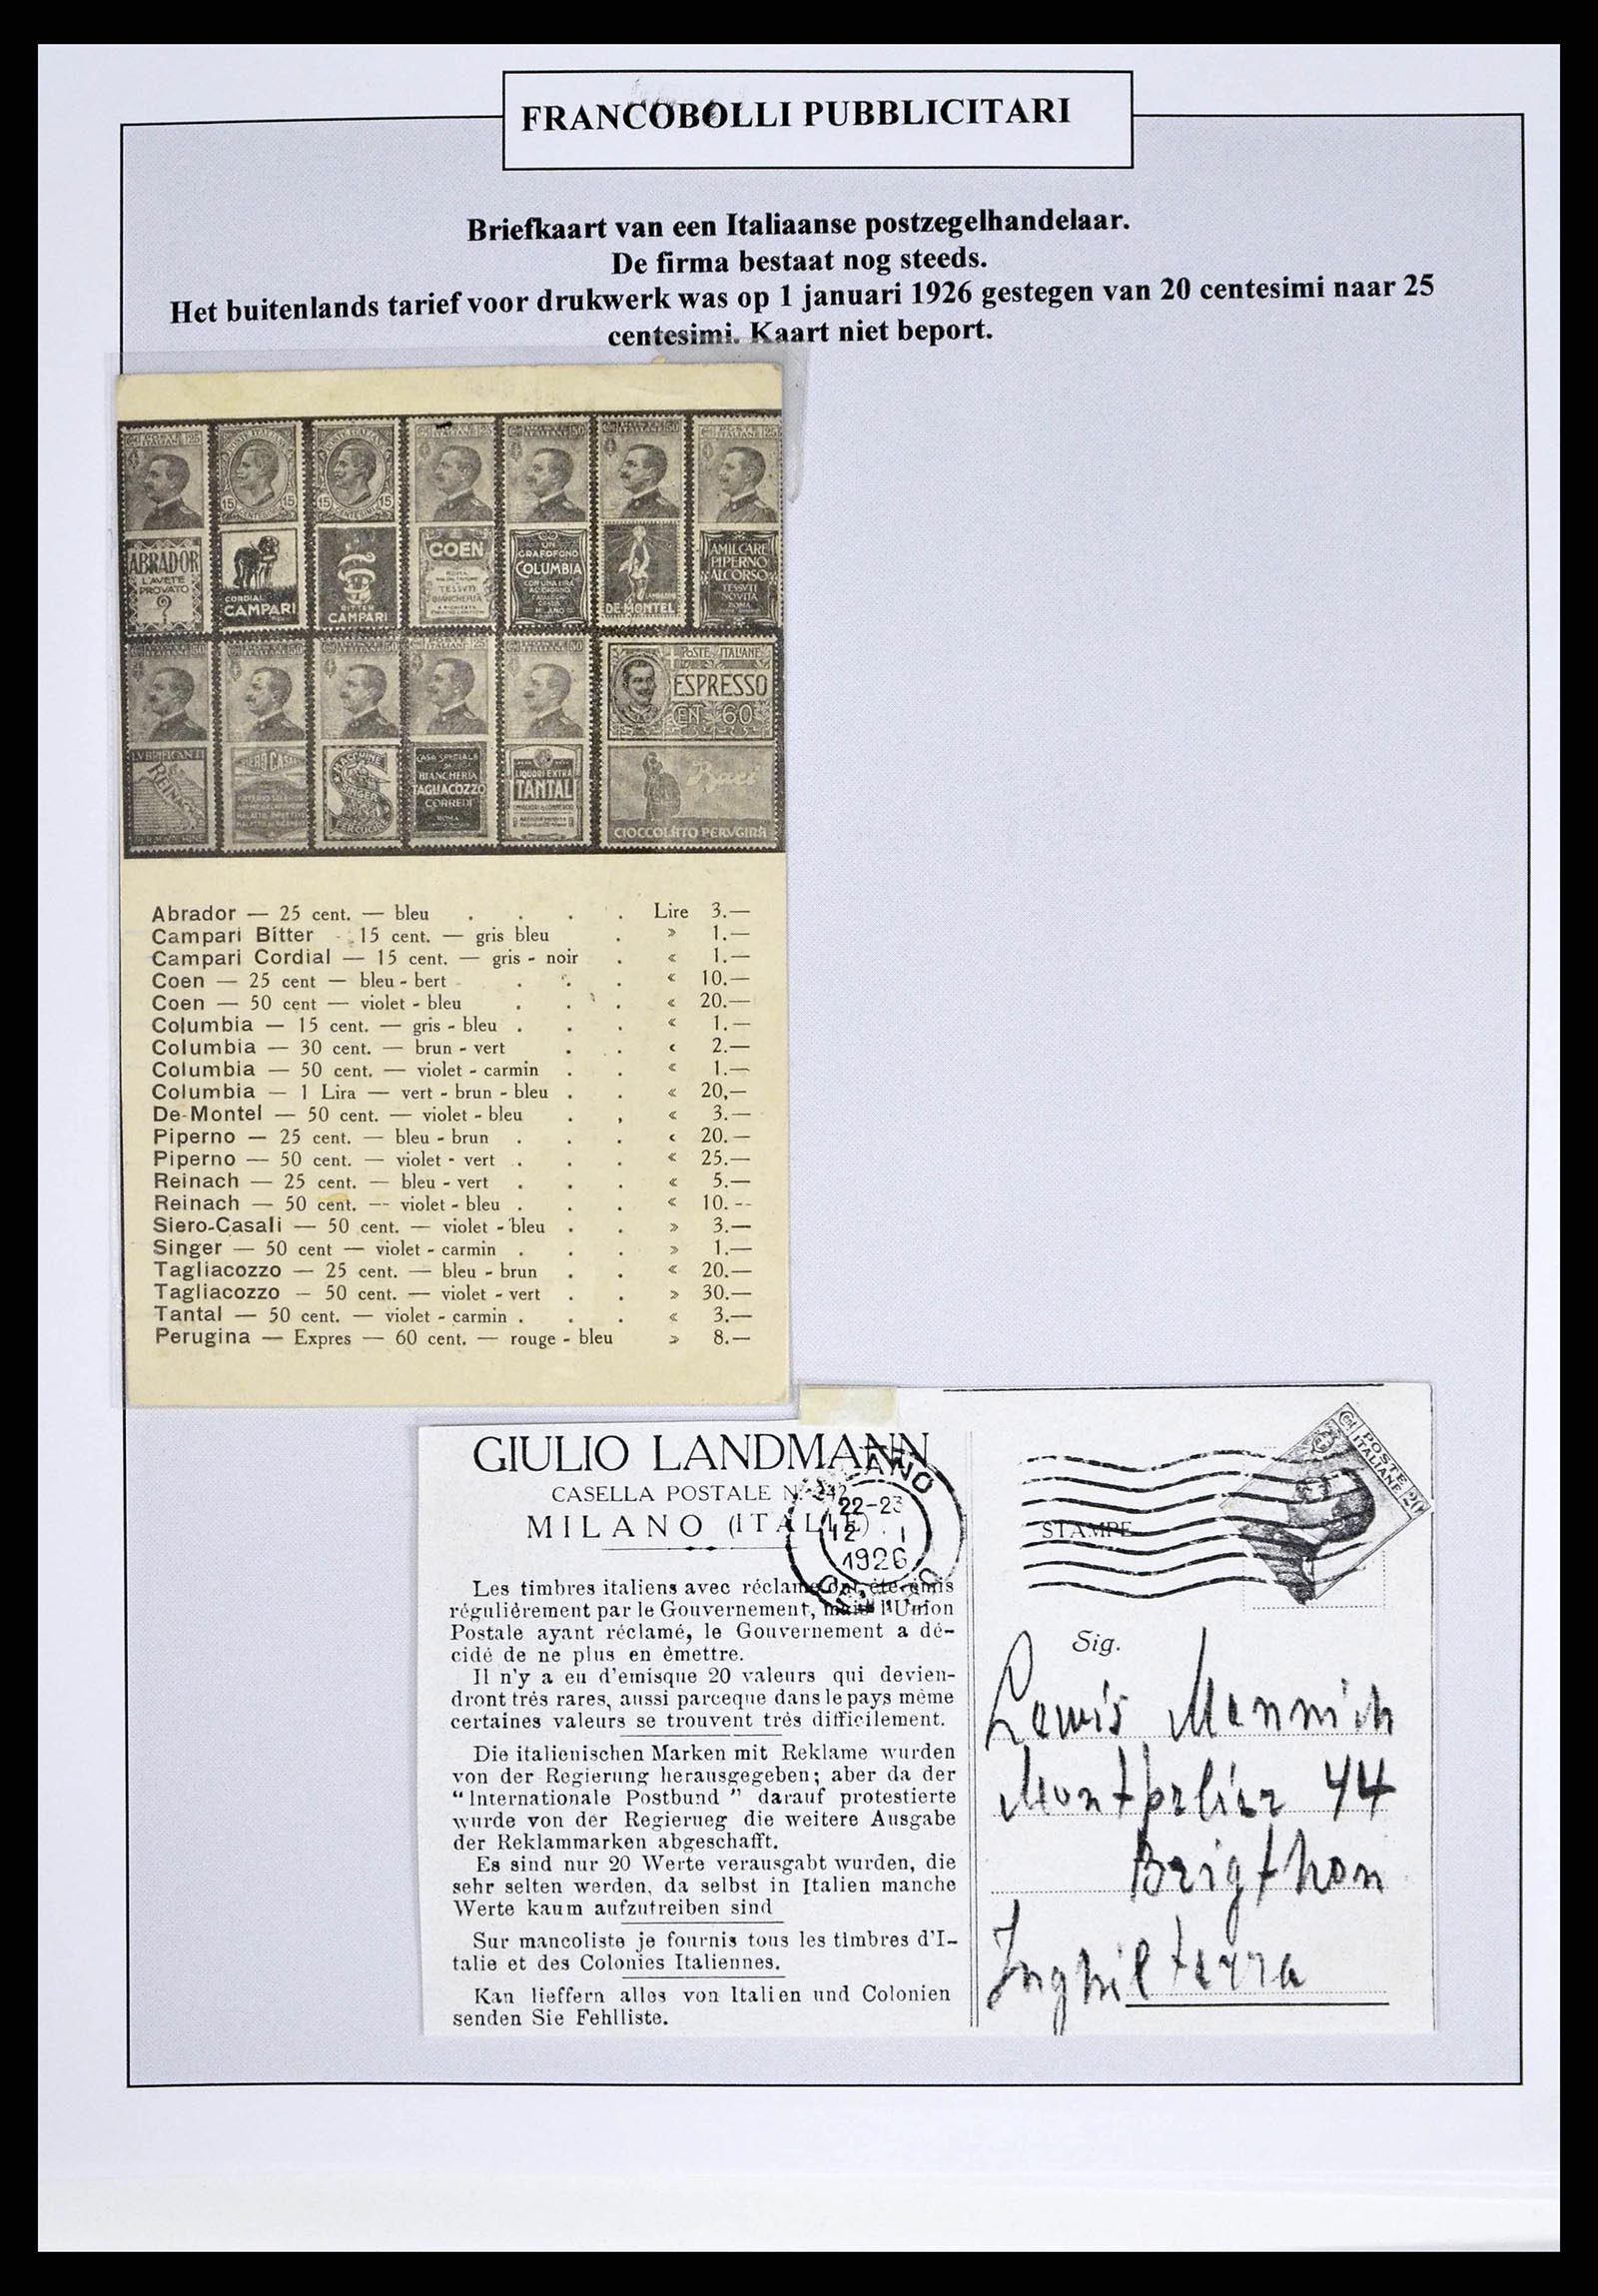 FRANCOBOLLI PUBBLICITARI
Briefkaart van een Italiaanse postzegelhandelaar.
De firma bestaat nog steeds.
Het buitenlands tarief voor drukwerk was op 1 januari 1926 gestegen van 20 centesimi naar 25
centesimi. Kaart niet beport.
ABRADOR
L'AVETE
PROVATO
?
15 15
CORDIAL
CAMPARI
15 15
BITTER
CAMPARI
COEN
TESSVTI
BIANCHERIA
UN
GRAFOFONO
COLUMBIA
MILANO
DE MONTEL
AMILCARE
PIPERNO
ALCORSO
TESSVTI
NOVITA
ROMA
LVBRIFICANTI
REINACH
SIERO CASALI
MACCHINE
SINGER
PER CUCIRE
CASA SPECIALE
DI
BIANCHERIA
TAGLIACOZZO
CORREDI
ROMA
LIQUORI EXTRA
TANTAL
POSTE ITALIANE
ESPRESSO
CEN. 60
Baci
CIOCCOLATO PERVGINA
Abrador — 25 cent. — bleu . . . . Lire 3.—
Campari Bitter - 15 cent. — gris bleu . » 1.—
Campari Cordial — 15 cent. — gris - noir . « 1.—
Coen — 25 cent — bleu - bert . . . « 10.—
Coen — 50 cent — violet - bleu . . . « 20.—
Columbia — 15 cent. — gris - bleu . . . « 1.—
Columbia — 30 cent. — brun - vert . . ‹ 2.—
Columbia — 50 cent. — violet - carmin . . « 1.—
Columbia — 1 Lira — vert - brun - bleu . . « 20,—
De-Montel — 50 cent. — violet - bleu . , « 3.—
Piperno — 25 cent. — bleu - brun . . . ‹ 20.—
Piperno — 50 cent. — violet - vert . . . « 25.—
Reinach — 25 cent. — bleu - vert . . . « 5.—
Reinach — 50 cent. -- violet - bleu . . . « 10.--
Siero-Casali — 50 cent. — violet - bleu . . » 3.—
Singer — 50 cent — violet - carmin . . . » 1.—
Tagliacozzo — 25 cent. — bleu - brun . . « 20.—
Tagliacozzo — 50 cent. — violet - vert . . » 30.—
Tantal — 50 cent. — violet - carmin . . . « 3.—
Perugina — Expres — 60 cent. — rouge - bleu » 8.—
GIULIO LANDMANN
CASELLA POSTALE N. 242
MILANO (ITALIE)
22-23
12 . I
1926
Les timbres italiens avec réclame ont été émis
réguliêrement par le Gouvernement, mais l'Union
Postale ayant réclamé, le Gouvernement a dé-
cidé de ne plus en émettre.
Il n'y a eu d'emisque 20 valeurs qui devien-
dront trés rares, aussi parceque dans le pays même
certaines valeurs se trouvent trés difficilement.
Die italienischen Marken mit Reklame wurden
von der Regierung herausgegeben; aber da der
“Internationale Postbund” darauf protestierte
wurde von der Regierueg die weitere Ausgabe
der Reklammarken abgeschafft.
Es sind nur 20 Werte verausgabt wurden, die
sehr selten werden, da selbst in Italien manche
Werte kaum aufzutreiben sind
Sur mancoliste je fournis tous les timbres d'I-
talie et des Colonies Italiennes.
Kan lieffern alles von Italien und Colonien
senden Sie Fehlliste.
POSTE
ITALIANE
Cent 20
STAMPE
Sig.
Lewis Mennich
Montpelier 44
Brigthon
Inghilterra